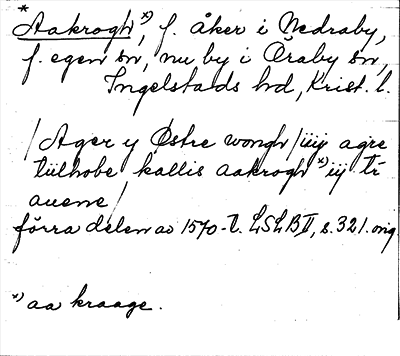 * Aakrogh *), f. åker i Nedraby,
f. egen sn, nu by i Öraby sn,
Ingelstads hd, Krist. l.
/Ager y Østre wongh/ iiij agre
tiilhobe kallis aakrogh *) iij tr
auene/
förra delen av 1570-t. LSLB II, s. 321. orig
*) aa kraage.